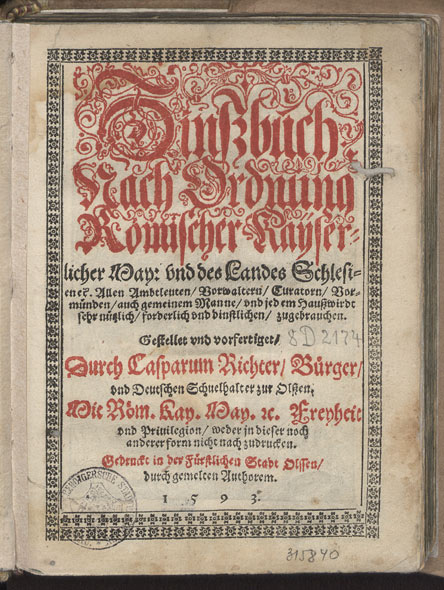 Zinßbuch
Nach Ordnung
Römischer Kayser-
licher May: vnd des Landes Schlesi-
enes. Allen Ambtleuten / Vorwaltern / Curatorn / Vor-
münden / auch gemeinem Manne / vnd jedem Haußwirdt
sehr nützlich / forderlich vnd dinstlichen / zugebrauchen.
Gestellet vnd vorfertiget /
8D 2174
Durch Casparum Richter / Bürger /
vnd Deutschen Schuelhalter zur Olßen.
Mit Röm. Kay. May. ꝛc. Freyheit
vnd Priuilegion / weder in dieser noch
anderer form nicht nach zudrucken.
Gedruckt in der Fürstlichen Stadt Olssen /
durch gemelten Authorem.
1 5 9 3.
315840